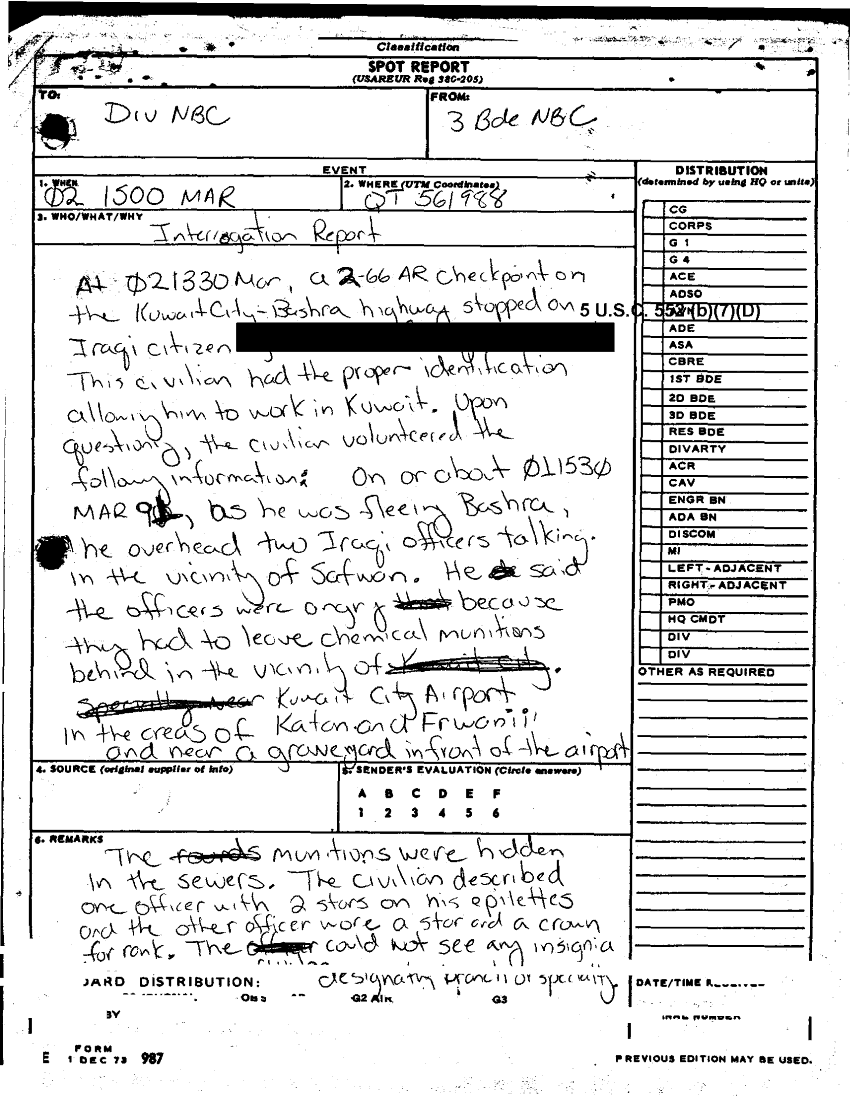 Classification
SPOT REPORT
(USAREUR Reg 380-205)
TO:
DIV NBC
FROM:
3 Bde NBC
EVENT
1. WHEN
02 1500 MAR
2. WHERE (UTM Coordinates)
QT 561988
3. WHO/WHAT/WHY
Interrogation Report
At Ø21330 Mar, a 2-66 AR checkpoint on
the Kuwait City-Bashra highway stopped on
5 U.S.C. 552 (b)(7)(D)
Iraqi citizen
This civilian had the proper identification
allowing him to work in Kuwait. Upon
questioning, the civilian volunteered the
following information: On or about Ø1153Ø
MAR 91, as he was fleeing Bashra,
he overhead two Iraqi officers talking.
in the vicinity of Safwan. He said
the officers were angry because
they had to leave chemical munitions
behind in the vicinity of
Kuwait City Airport
in the areas of Katan and Frwanii
and near a graveyard in front of the airport
4. SOURCE (original supplier of info)
5. SENDER'S EVALUATION (Circle answers)
A B C D E F
1 2 3 4 5 6
6. REMARKS
The munitions were hidden
in the sewers. The civilian described
one officer with 2 stars on his epilettes
and the other officer wore a star and a crown
for rank. The could not see any insignia
designating branch or specialty
DISTRIBUTION
(determined by using HQ or units)
CG
CORPS
G 1
G 4
ACE
ADSO
ADE
ASA
CBRE
1ST BDE
2D BDE
3D BDE
RES BDE
DIVARTY
ACR
CAV
ENGR BN
ADA BN
DISCOM
MI
LEFT-ADJACENT
RIGHT-ADJACENT
PMO
HQ CMDT
DIV
DIV
OTHER AS REQUIRED
JARD DISTRIBUTION:
G2 AIR
G3
DATE/TIME
BY
E FORM 1 DEC 73 987
PREVIOUS EDITION MAY BE USED.